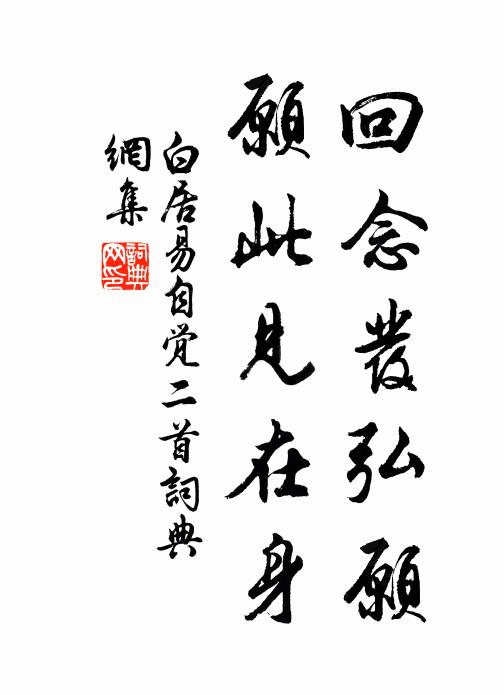 回念發弘願
願此見在身
白居易自觉二首詞典
網集
詞典
网印